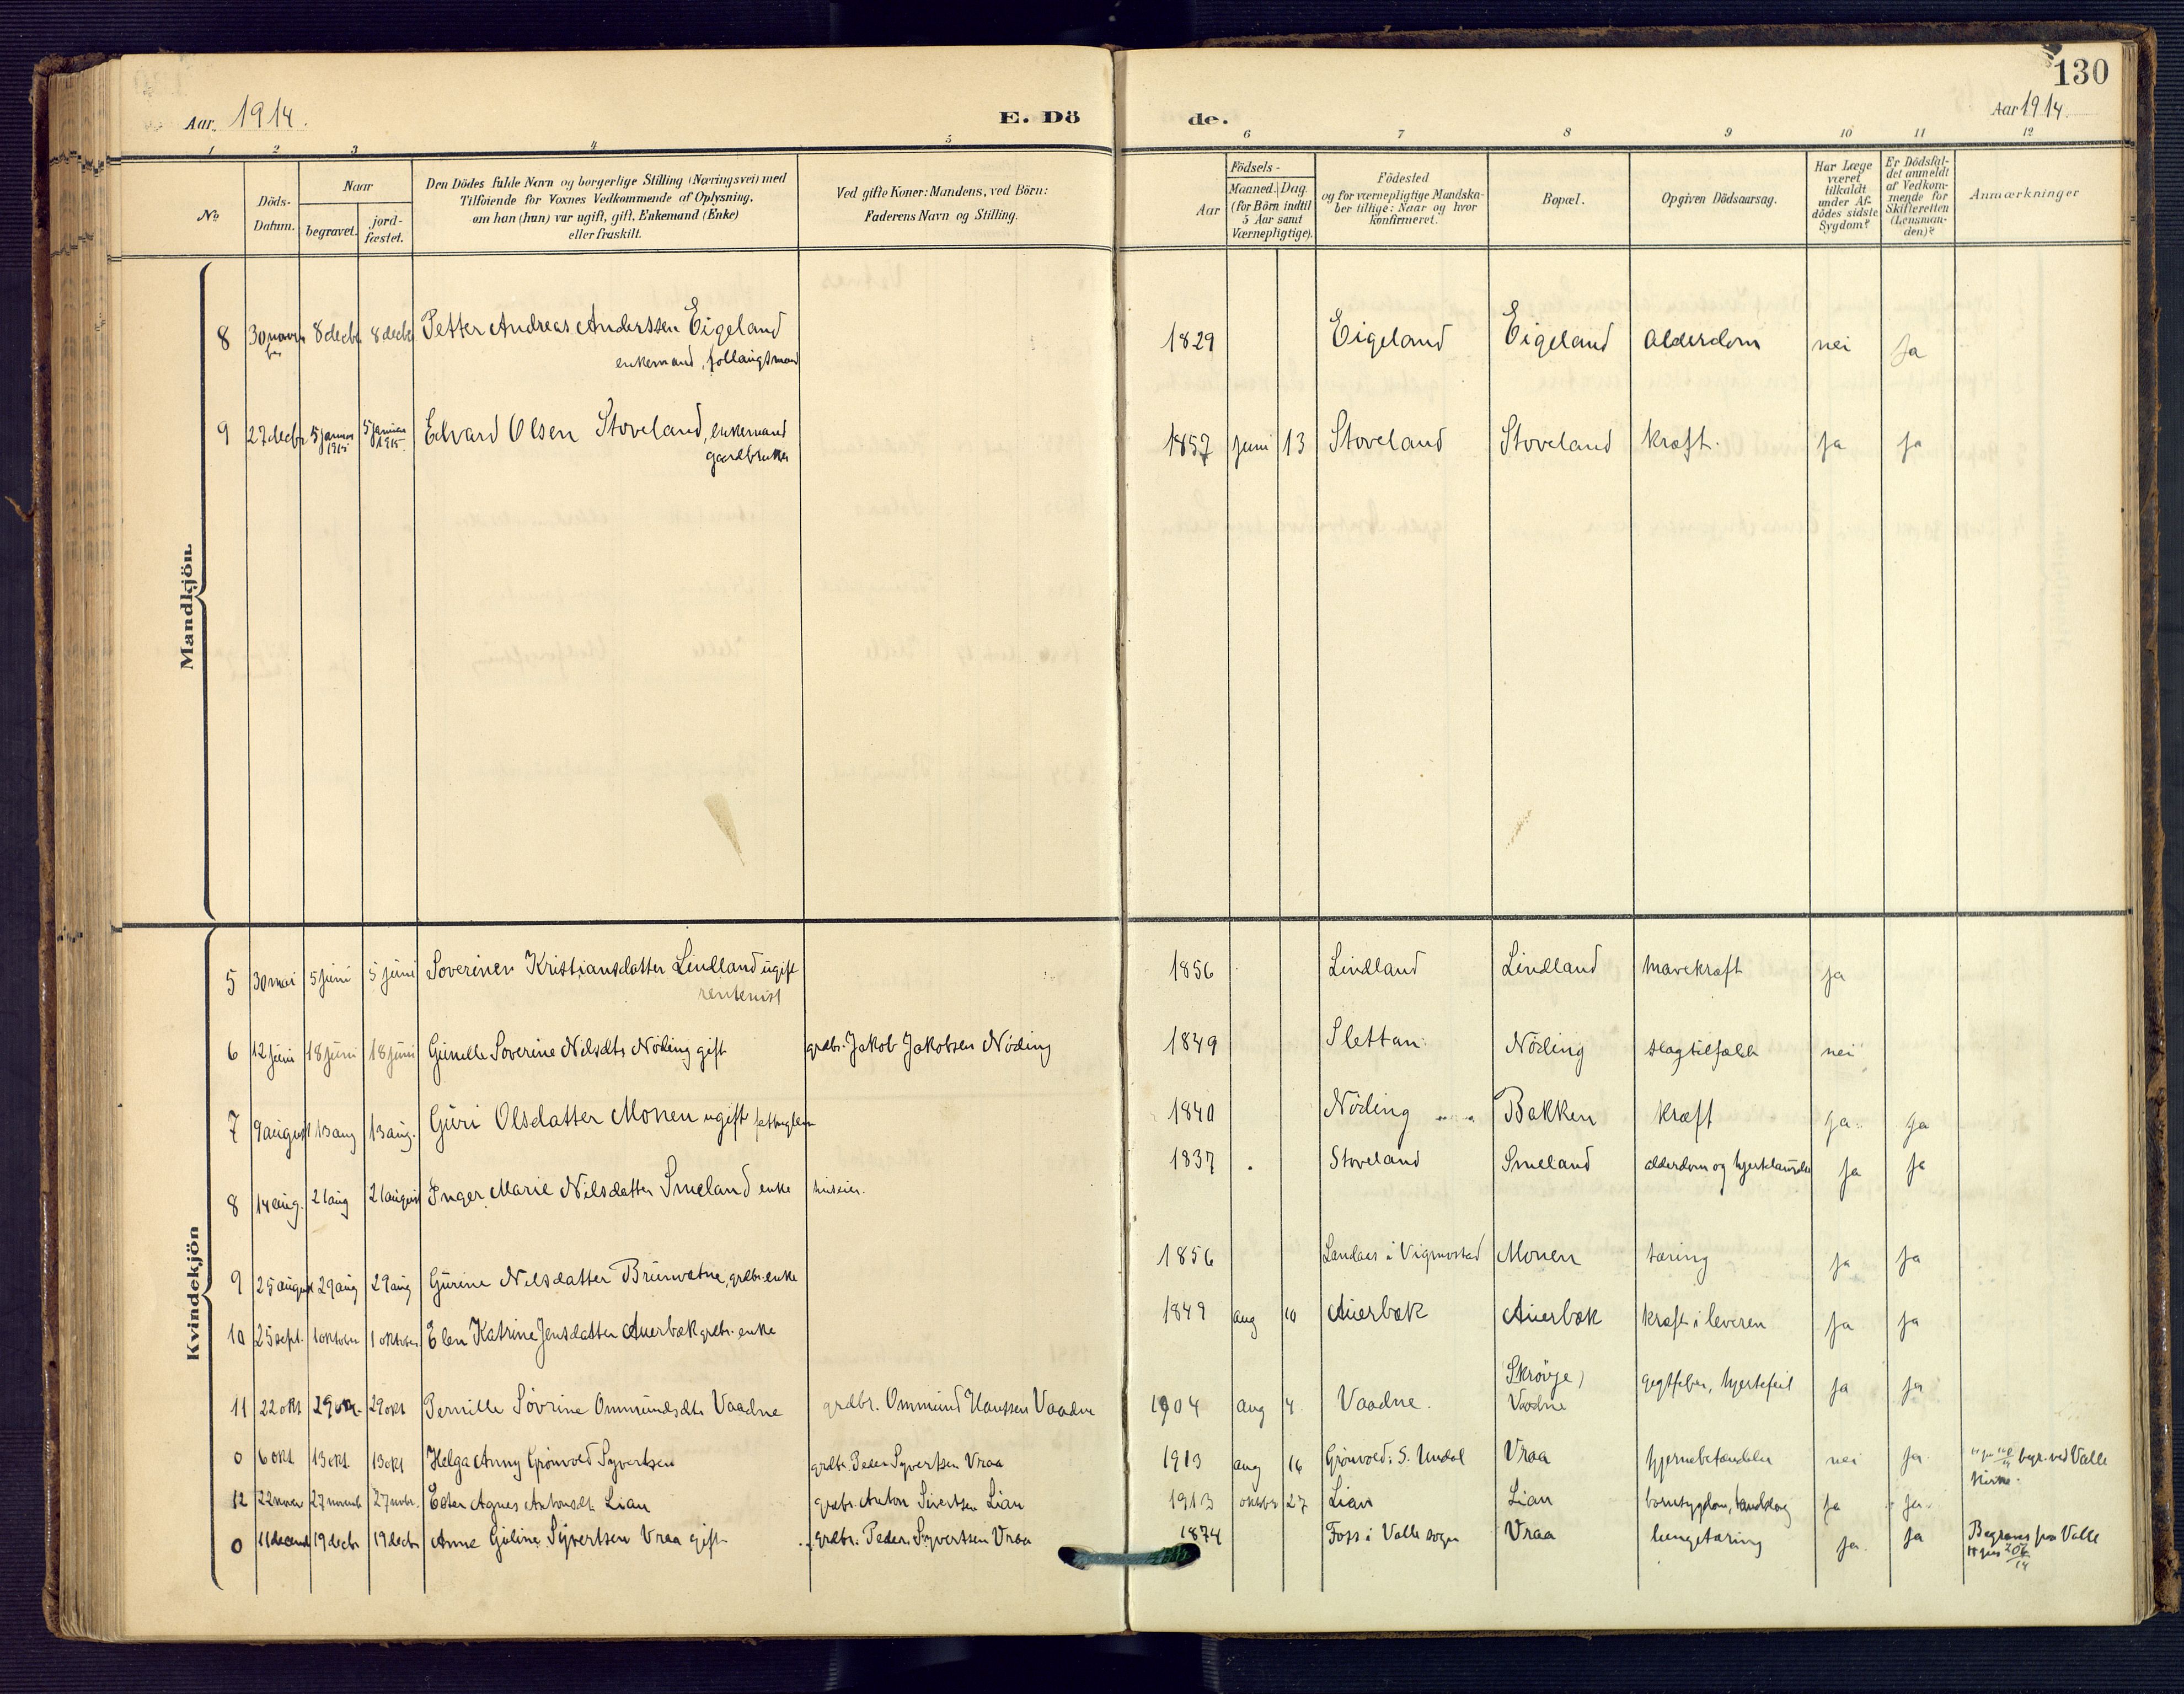 130
Aar. 1914.
E. Dö
de.
Aar 1914.
1 2 3 4 5 6 7 8 9 10 11 12
No
Döds-
Datum.
Naar
begravet.
jord-
fæstet.
Den Dödes fulde Navn og borgerlige Stilling (Næringsvei) med
Tilföiende for Voxnes Vedkommende af Oplysning,
om han (hun) var ugift, gift, Enkemand (Enke)
eller fraskilt.
Ved gifte Koner: Mandens, ved Börn:
Faderens Navn og Stilling.
Aar
Födsels-
Maaned. Dag.
(for Börn indtil
5 Aar samt
Værnepligtige).
Födested
og for værnepligtige Mandska-
ber tillige: Naar og hvor
konfirmeret.
Bopæl.
Opgiven Dödsaarsag.
Har Læge
været
tilkaldt
under Af-
dödes sidste
Sygdom?
Er Dödsfal-
det anmeldt
af Vedkom-
mende for
Skifteretten
(Lensman-
den)?
Anmærkninger
Mandkjön.
8 30 novem
ber 8 decbr 8 decbr Petter Andreas Anderssen Eigeland 1829 Eigeland Eigeland Alderdom nei ja
enkemand,
9 27 decbr 5 januar 1915 5 januar 1915. Edvard Olsen Stoveland, enkemand 1857 juni 13 Stoveland Stoveland kræft. ja ja
gardbruker
Kvindekjön
5 30 mai 5 juni 5 juni Soverine Kristiansdatter Lindland ugift 1856 Lindland Lindland mavekræft ja
rentenist
6 12 juni 18 juni 18 juni Gunelle Soverine Nilsdtr Nöding gift grdbr. Jakob Jakobsen Nöding 1849 Slettan Nöding slagtilfælde nei
7 9 august 13 aug 13 aug. Guri Olsdatter Monen ugift 1840 Nöding Bakken kræft ja ja
8 14 aug. 21 aug 21 august Inger Marie Nilsdatter Smeland enke huseier. 1837 Stoveland Smeland alderdom og ja ja
9 25 august 29 aug 29 aug Gurine Nilsdatter Brunvatne, grdbr. enke 1856 Landaas i Vigmostad Monen tæring ja ja
10 25 sept. 1 oktober 1 oktober Elen Katrine Jensdatter Auerbæk grdbr. enke 1849 aug 10 Auerbæk Auerbæk kræft i leveren ja ja
11 22 okt 29 okt. 29 okt Pernille Sövrine Ommundsdtr Vaadne grdbr. Ommund Hanssen Vaadne 1904 aug 4. Vaadne. Skröyje) Vaadne gigtfeber, hjertefeil ja ja
0 6 okt 13 okt. 13 okt Helga Anny Grönvold Syvertsen grdbr. Peder Syvertsen Vraa 1913 aug 16 Grönvold i S. Undal Vraa hjernebetændelse nei ja begr. ved Valle
kirke.
12 22 novbr 27 novemb 27 nobr. Ester Agnes Antonsdtr Lian grdbr. Anton Sivertsen Lian 1913 oktober 27 Lian Lian barnsygdom, ja ja.
0 11 decemb 19 decbr 19 decbr Anne Guline Syvertsen Vraa gift grdbr. Peder Syvertsen Vraa 1874 Foss i Valle sogn Vraa lungetæring ja. ja Begraves fra Valle